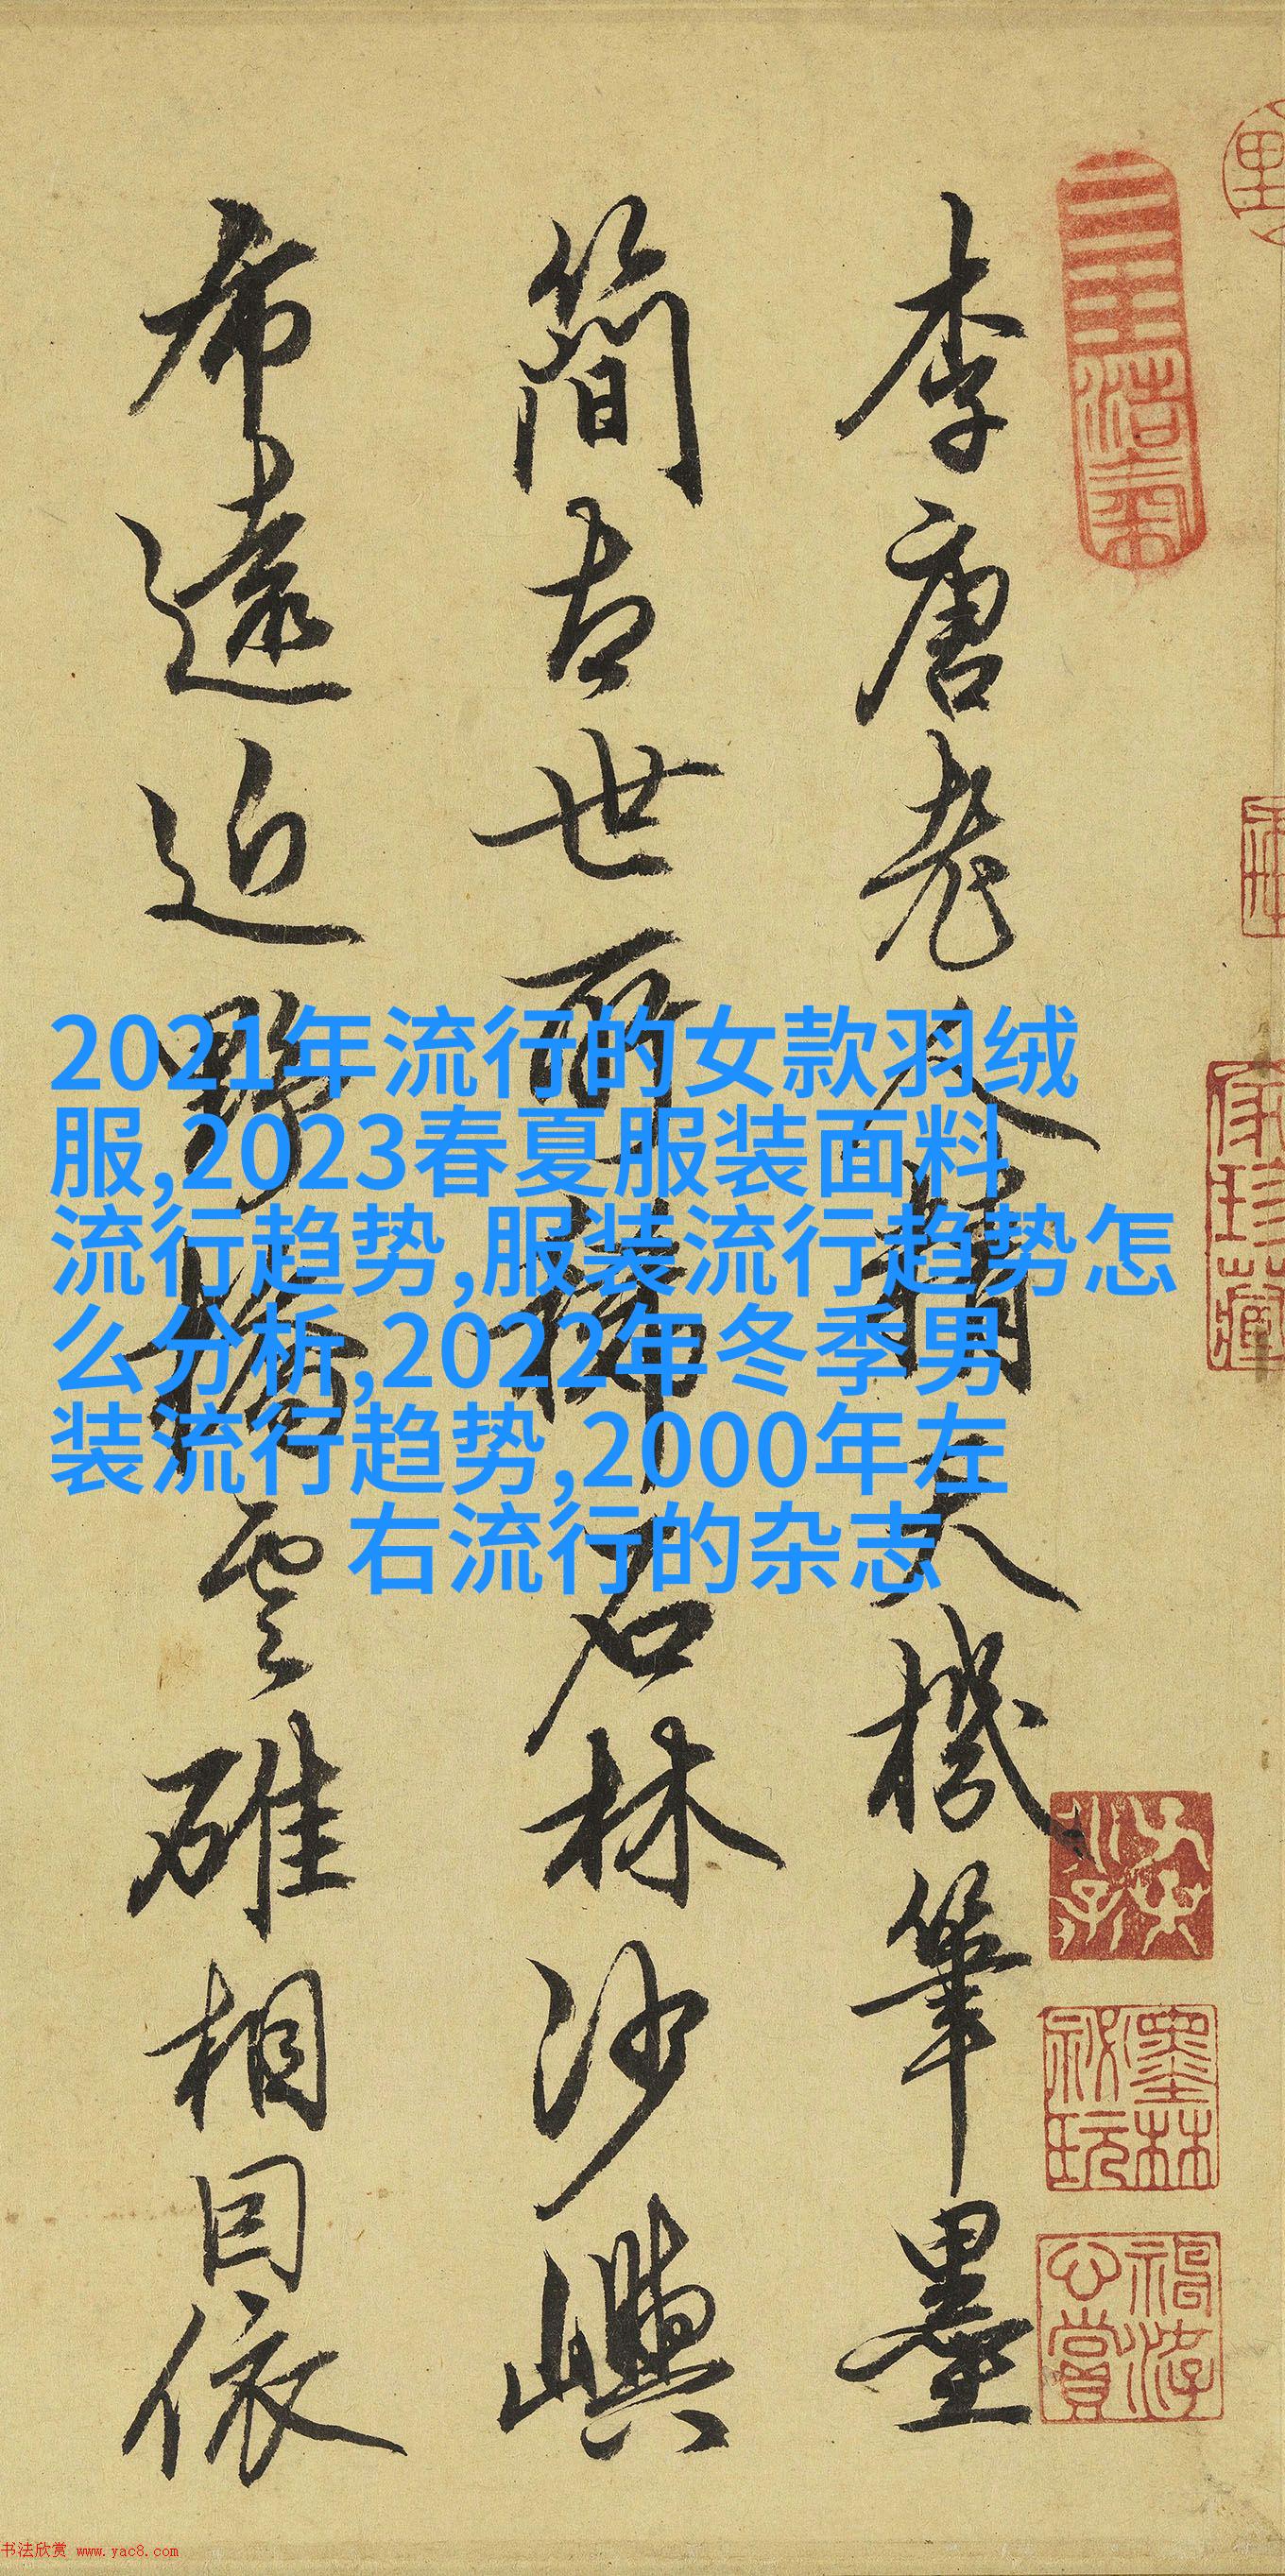 李唐老人精天機筆墨
簡古世所稀石林沙嶼
布遠近野橋雲碓相因依
2021年流行的女款羽绒
服,2023春夏服装面料
流行趋势,服装流行趋势怎
么分析,2022年冬季男
装流行趋势,2000年左
右流行的杂志
墨林秘玩
书法欣赏 www.yac8.com